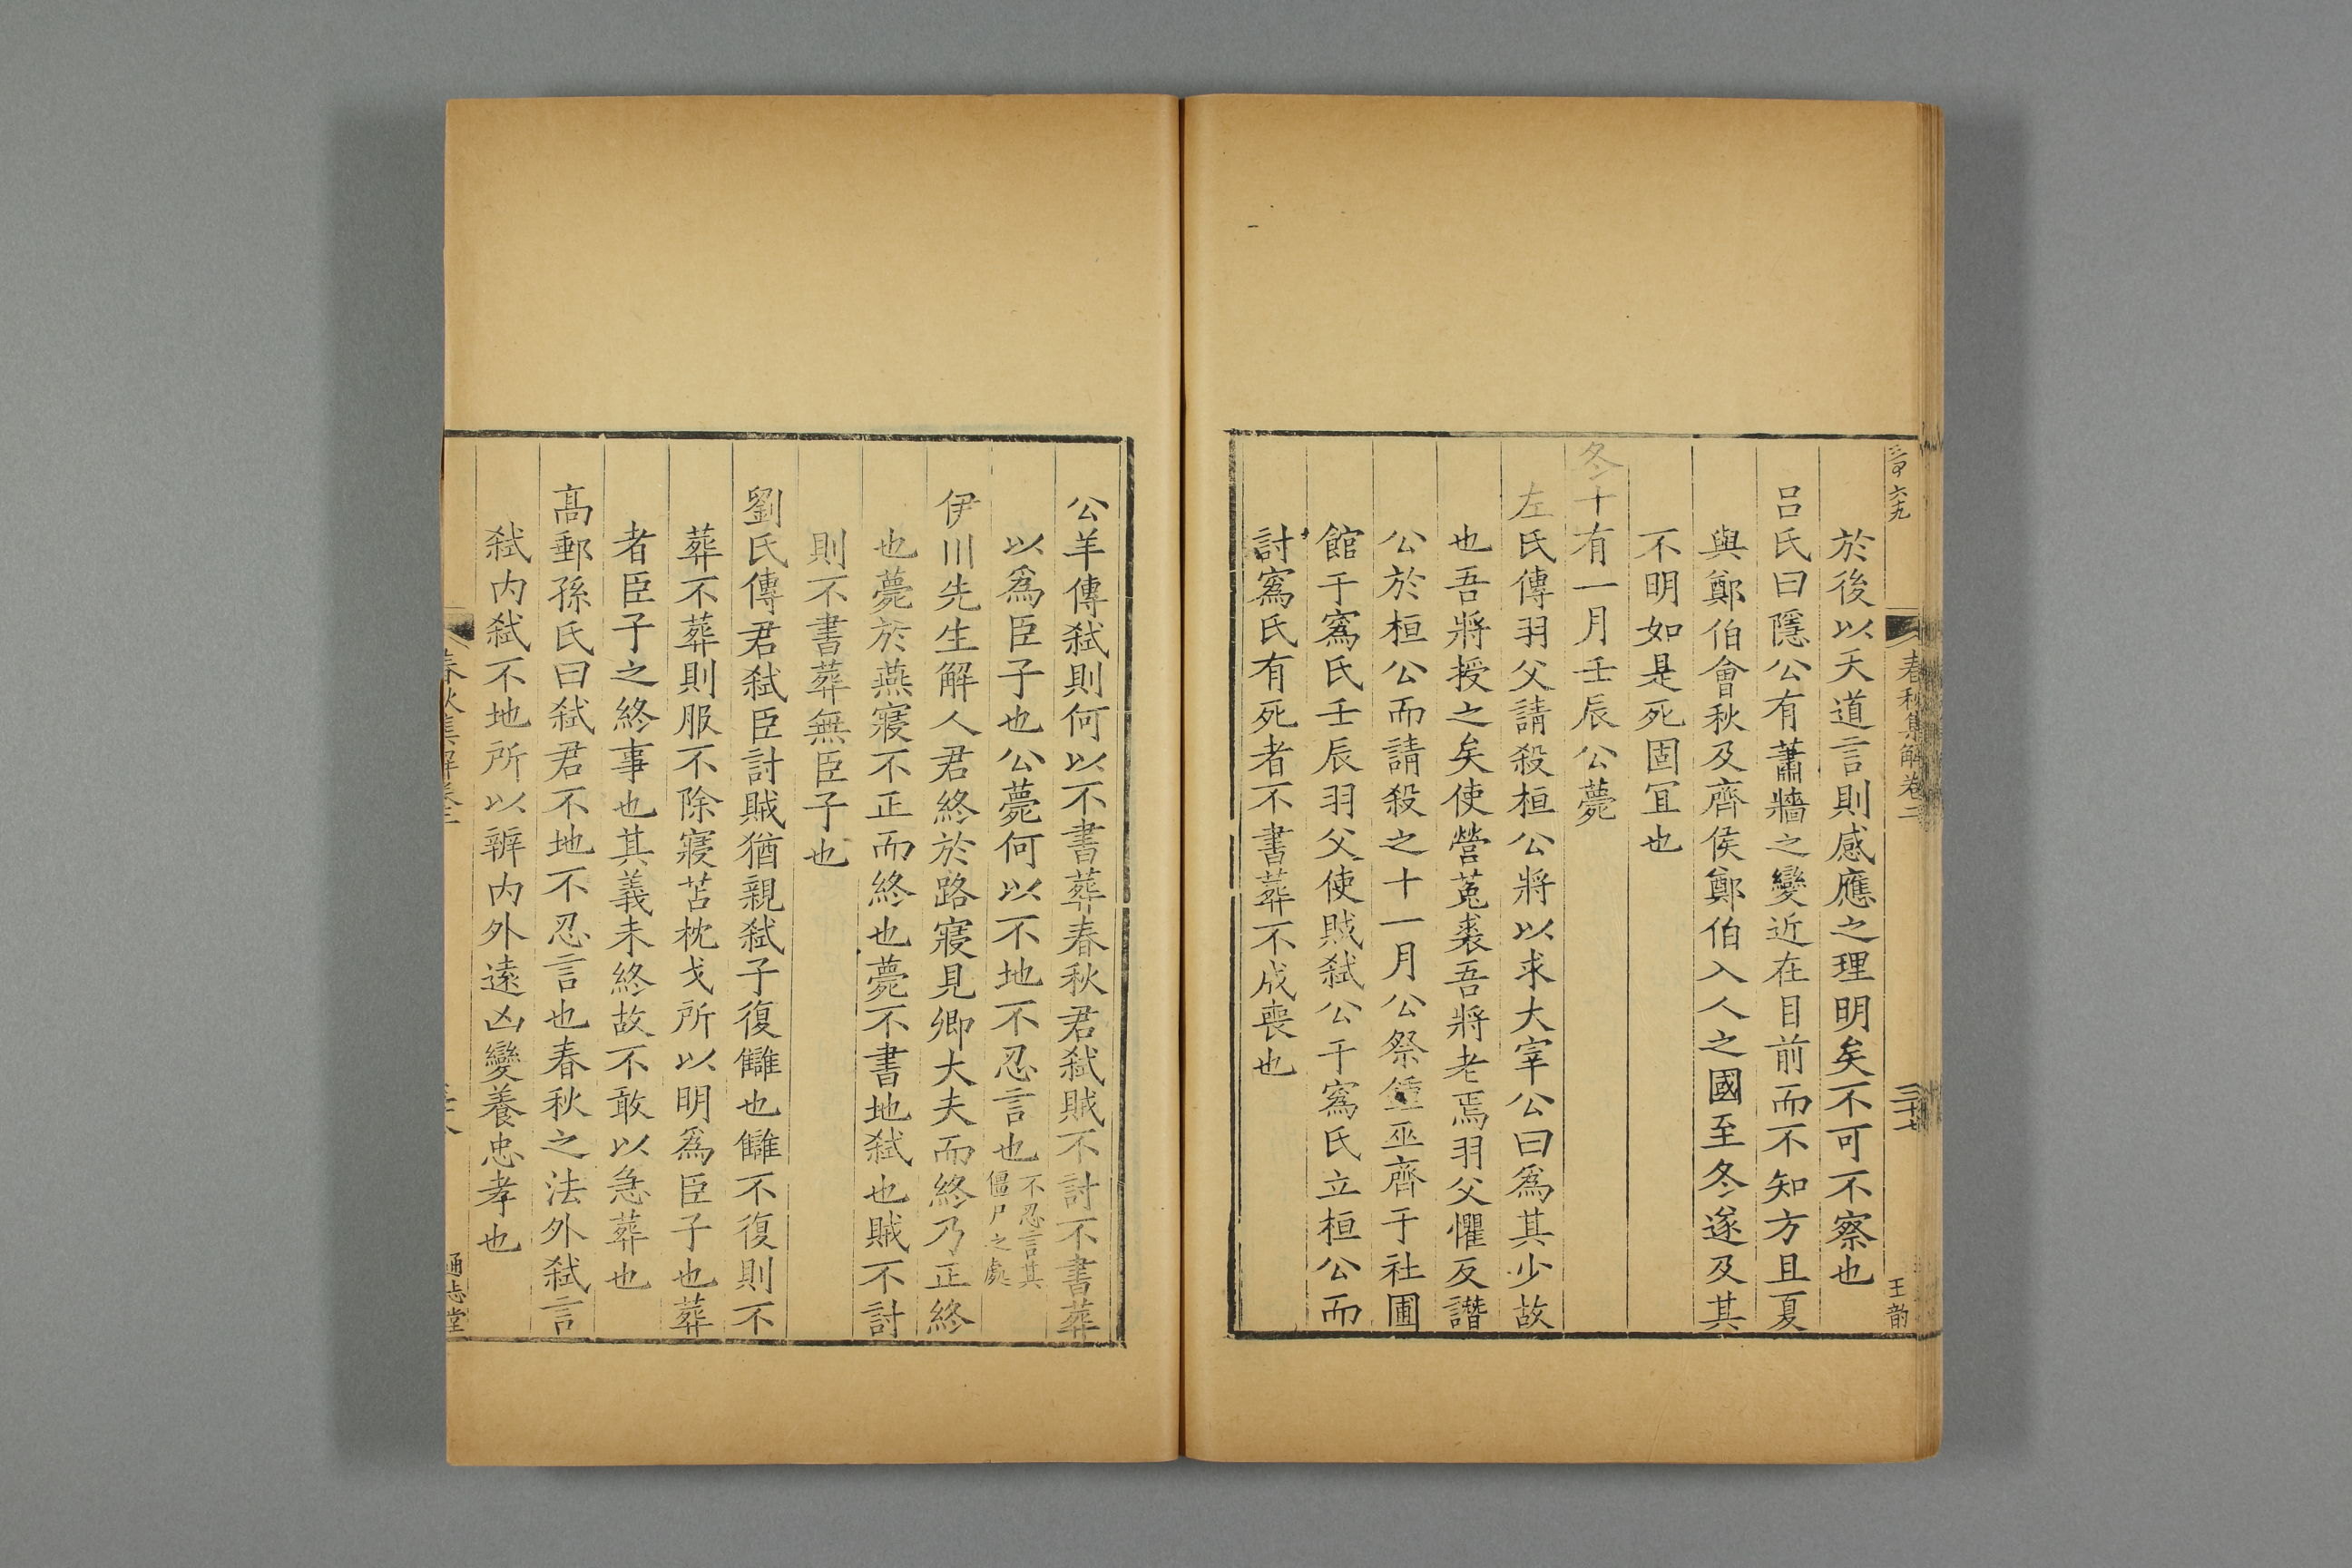 春秋集解卷二
三十七
王韵
於後以天道言則感應之理明矣不可不察也
呂氏曰隱公有蕭牆之變近在目前而不知方且夏
與鄭伯會秋及齊侯鄭伯入人之國至冬遂及其
不明如是死固冝也
冬十有一月壬辰公薨
左氏傳羽父請殺桓公將以求大宰公曰爲其少故
也吾將授之矣使營菟裘吾將老焉羽父懼反譖
公於桓公而請殺之十一月公祭鍾巫齊于社圃
館于寪氏壬辰羽父使賊弑公于寪氏立桓公而
討寪氏有死者不書葬不成喪也
公羊傳弑則何以不書葬春秋君弑賊不討不書葬
以爲臣子也公薨何以不地不忍言也不忍言其僵尸之處
伊川先生解人君終於路寢見卿大夫而終乃正終
也薨於燕寢不正而終也薨不書地弑也賊不討
則不書葬無臣子也
劉氏傳君弑臣討賊猶親弑子復讎也讎不復則不
葬不葬則服不除寢苫枕戈所以明爲臣子也葬
者臣子之終事也其義未終故不敢以急葬也
髙郵孫氏曰弑君不地不忍言也春秋之法外弑言
弑内弑不地所以辨内外遠凶變養忠孝也
春秋集解卷二
通志堂